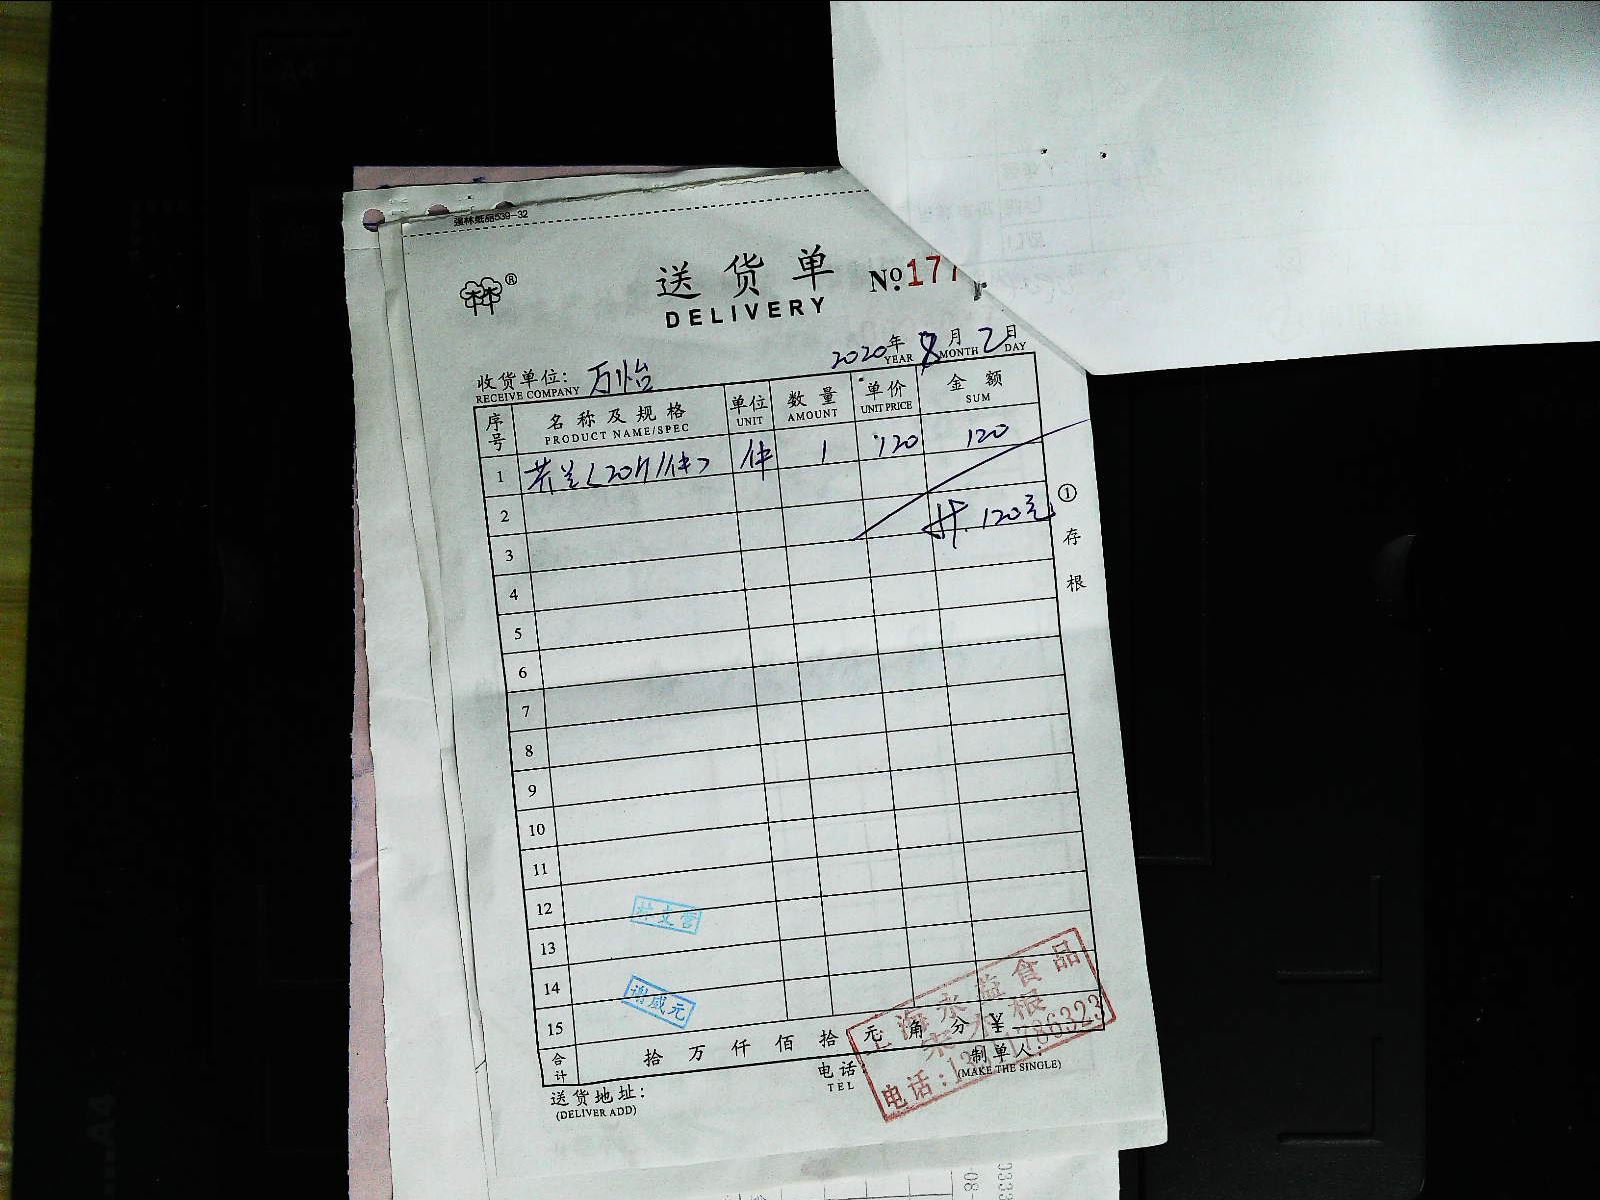 强林纸品539-32
®
送货单 №177
DELIVERY
2020年8月2日
YEAR MONTH DAY
收货单位: 万怡
RECEIVE COMPANY
序号 名称及规格 单位 数量 单价 金额
PRODUCT NAME/SPEC UNIT AMOUNT UNIT PRICE SUM
1 芥兰(20斤/件) 件 1 120 120
2
共.120元
3
4
5
6
7
8
9
10
11
12
13
14
15
① 存根
林立营
谢咸元
合计 拾万仟佰拾元角分 ¥
上海永益食品
电话:
送货地址: 电话: 制单人:
(DELIVER ADD) TEL (MAKE THE SINGLE)
A4